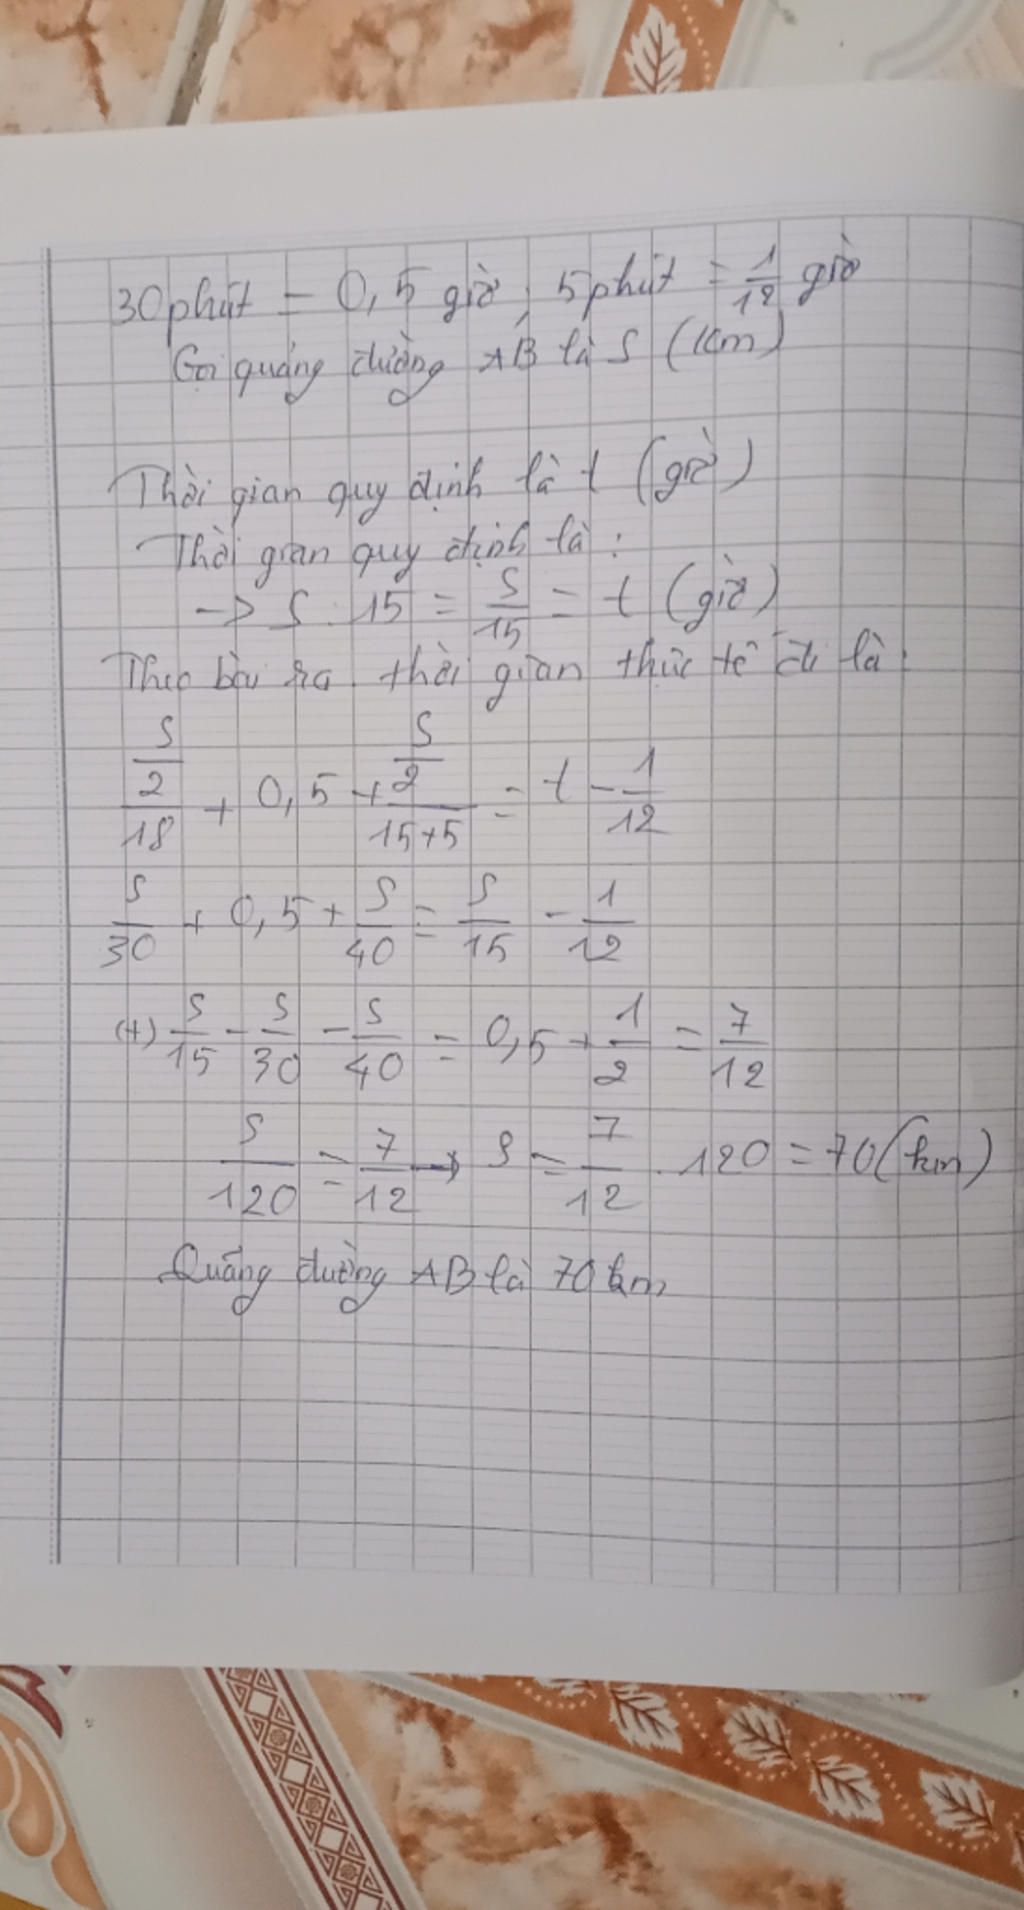 30 phút = 0,5 giờ, 5 phút = 1/12 giờ
Gọi quảng đường AB là S (km)
Thời gian quy định là t (giờ)
Thời gian quy định là:
-> S : 15 = S/15 = t (giờ)
Theo bài ra thời gian thức tế đi là:
(S/2)/18 + 0,5 + (S/2)/(15+5) = t - 1/12
S/30 + 0,5 + S/40 = S/15 - 1/12
(+) S/15 - S/30 - S/40 = 0,5 + 1/2 = 7/12
S/120 = 7/12 -> S = 7/12 . 120 = 70 (km)
Quãng đường AB là 70 km